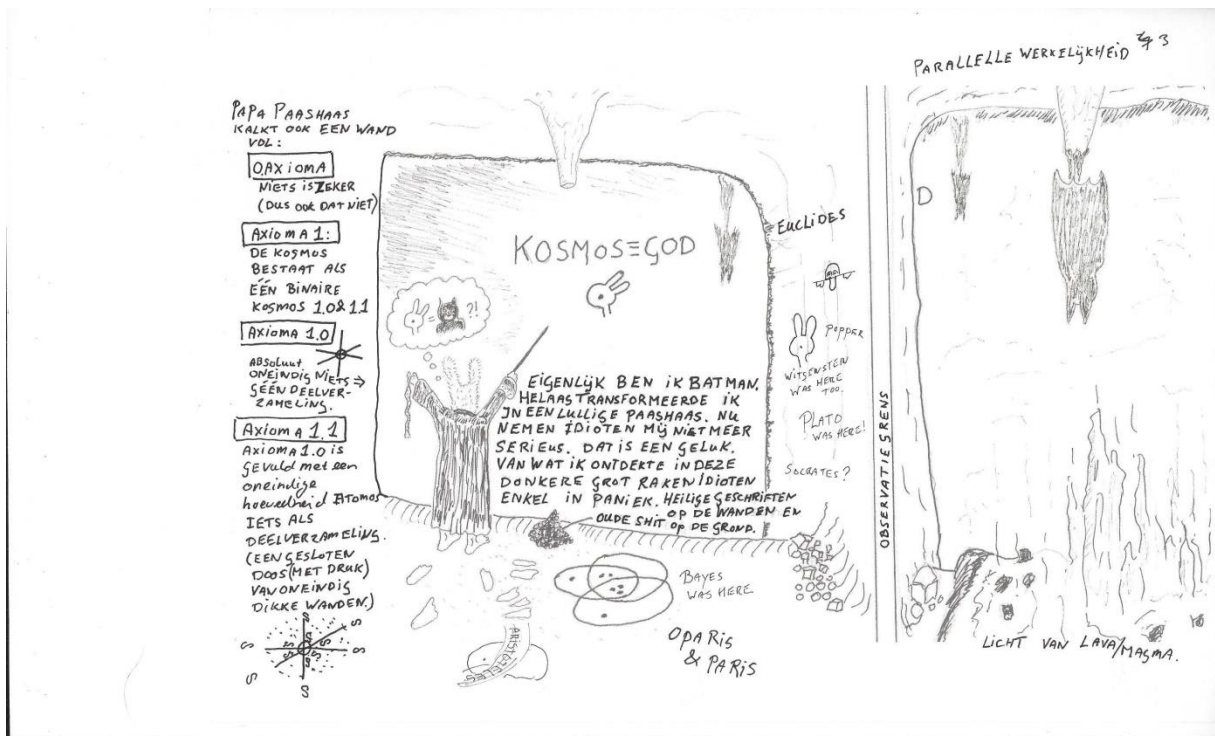 PAPA PAASHAAS
KALKT OOK EEN WAND
VOL:
0.AXiOMA
NiETS iS ZEKER
(DUS OOK DAT NiET)
AXiOMA 1:
DE KOSMOS
BESTAAT ALS
ÉÉN BiNAiRE
KOSMOS 1.0 & 1.1
AXiOMA 1.0
ABSOLUUT
ONEiNDiG NiETS ⇒
GÉÉN DEELVER-
ZAMELiNG.
AXiOMA 1.1
AXiOMA 1.0 is
gevuld met een
oneindige
hoeveelheid ATOMOS
IETS ALS
DEELVERZAMELiNG.
(EEN GESLOTEN
DOOS (MET DRUK)
VAN ONEiNDiG
DiKKE WANDEN.)
S S S S S S S S S S S S
KOSMOS≡GOD
= ?!
EiGENLiJK BEN iK BATMAN.
HELAAS TRANSFORMEERDE iK
iN EEN LULLiGE PAASHAAS. NU
NEMEN iDiOTEN MiJ NiET MEER
SERiEUS. DAT iS EEN GELUK.
VAN WAT iK ONTDEKTE iN DEZE
DONKERE GROT RAKEN iDiOTEN
ENKEL iN PANiEK. HEiLiGE GESCHRiFTEN
OP DE WANDEN EN
OUDE SHiT OP DE GROND.
EUCLiDES
POPPER
WiTGENSTEiN
WAS HERE
TOO.
PLATO
WAS HERE!
SOCRATES?
BAYES
WAS HERE
ARiSTOTELES
OPARiS
& PARiS
OBSERVATiEGRENS
PARALLELLE WERKELiJKHEiD
3
D
LiCHT VAN LAVA/MAGMA.